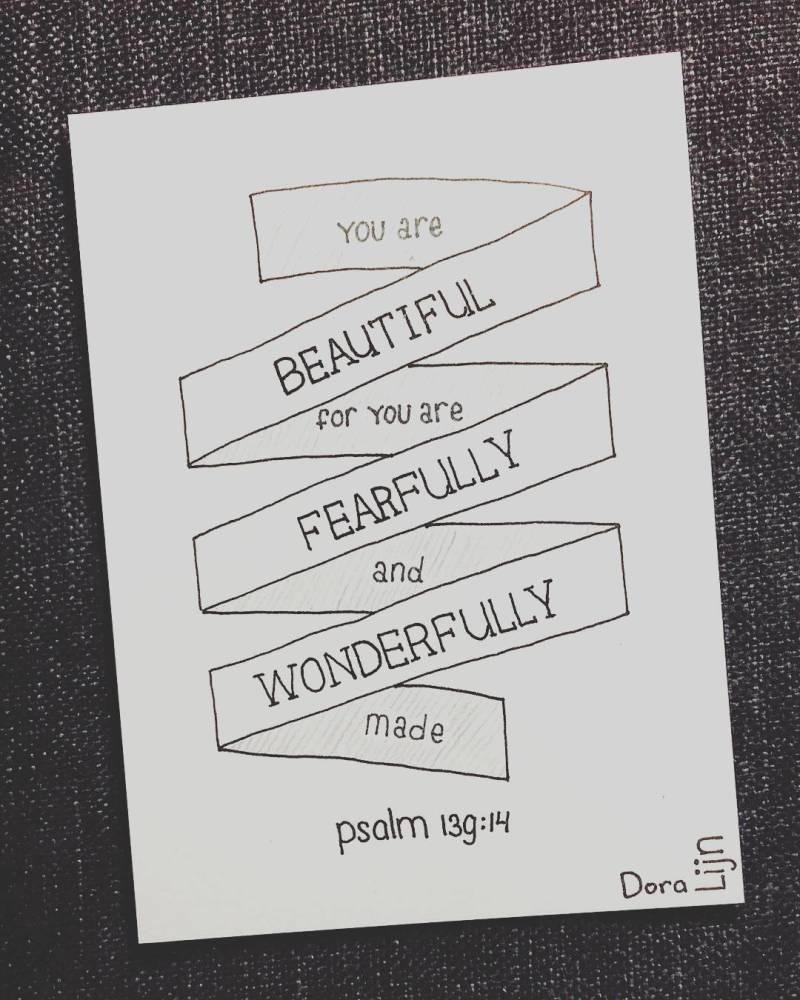 you are
BEAUTIFUL
for you are
FEARFULLY
and
WONDERFULLY
made
psalm 139:14
Dora
Lijn